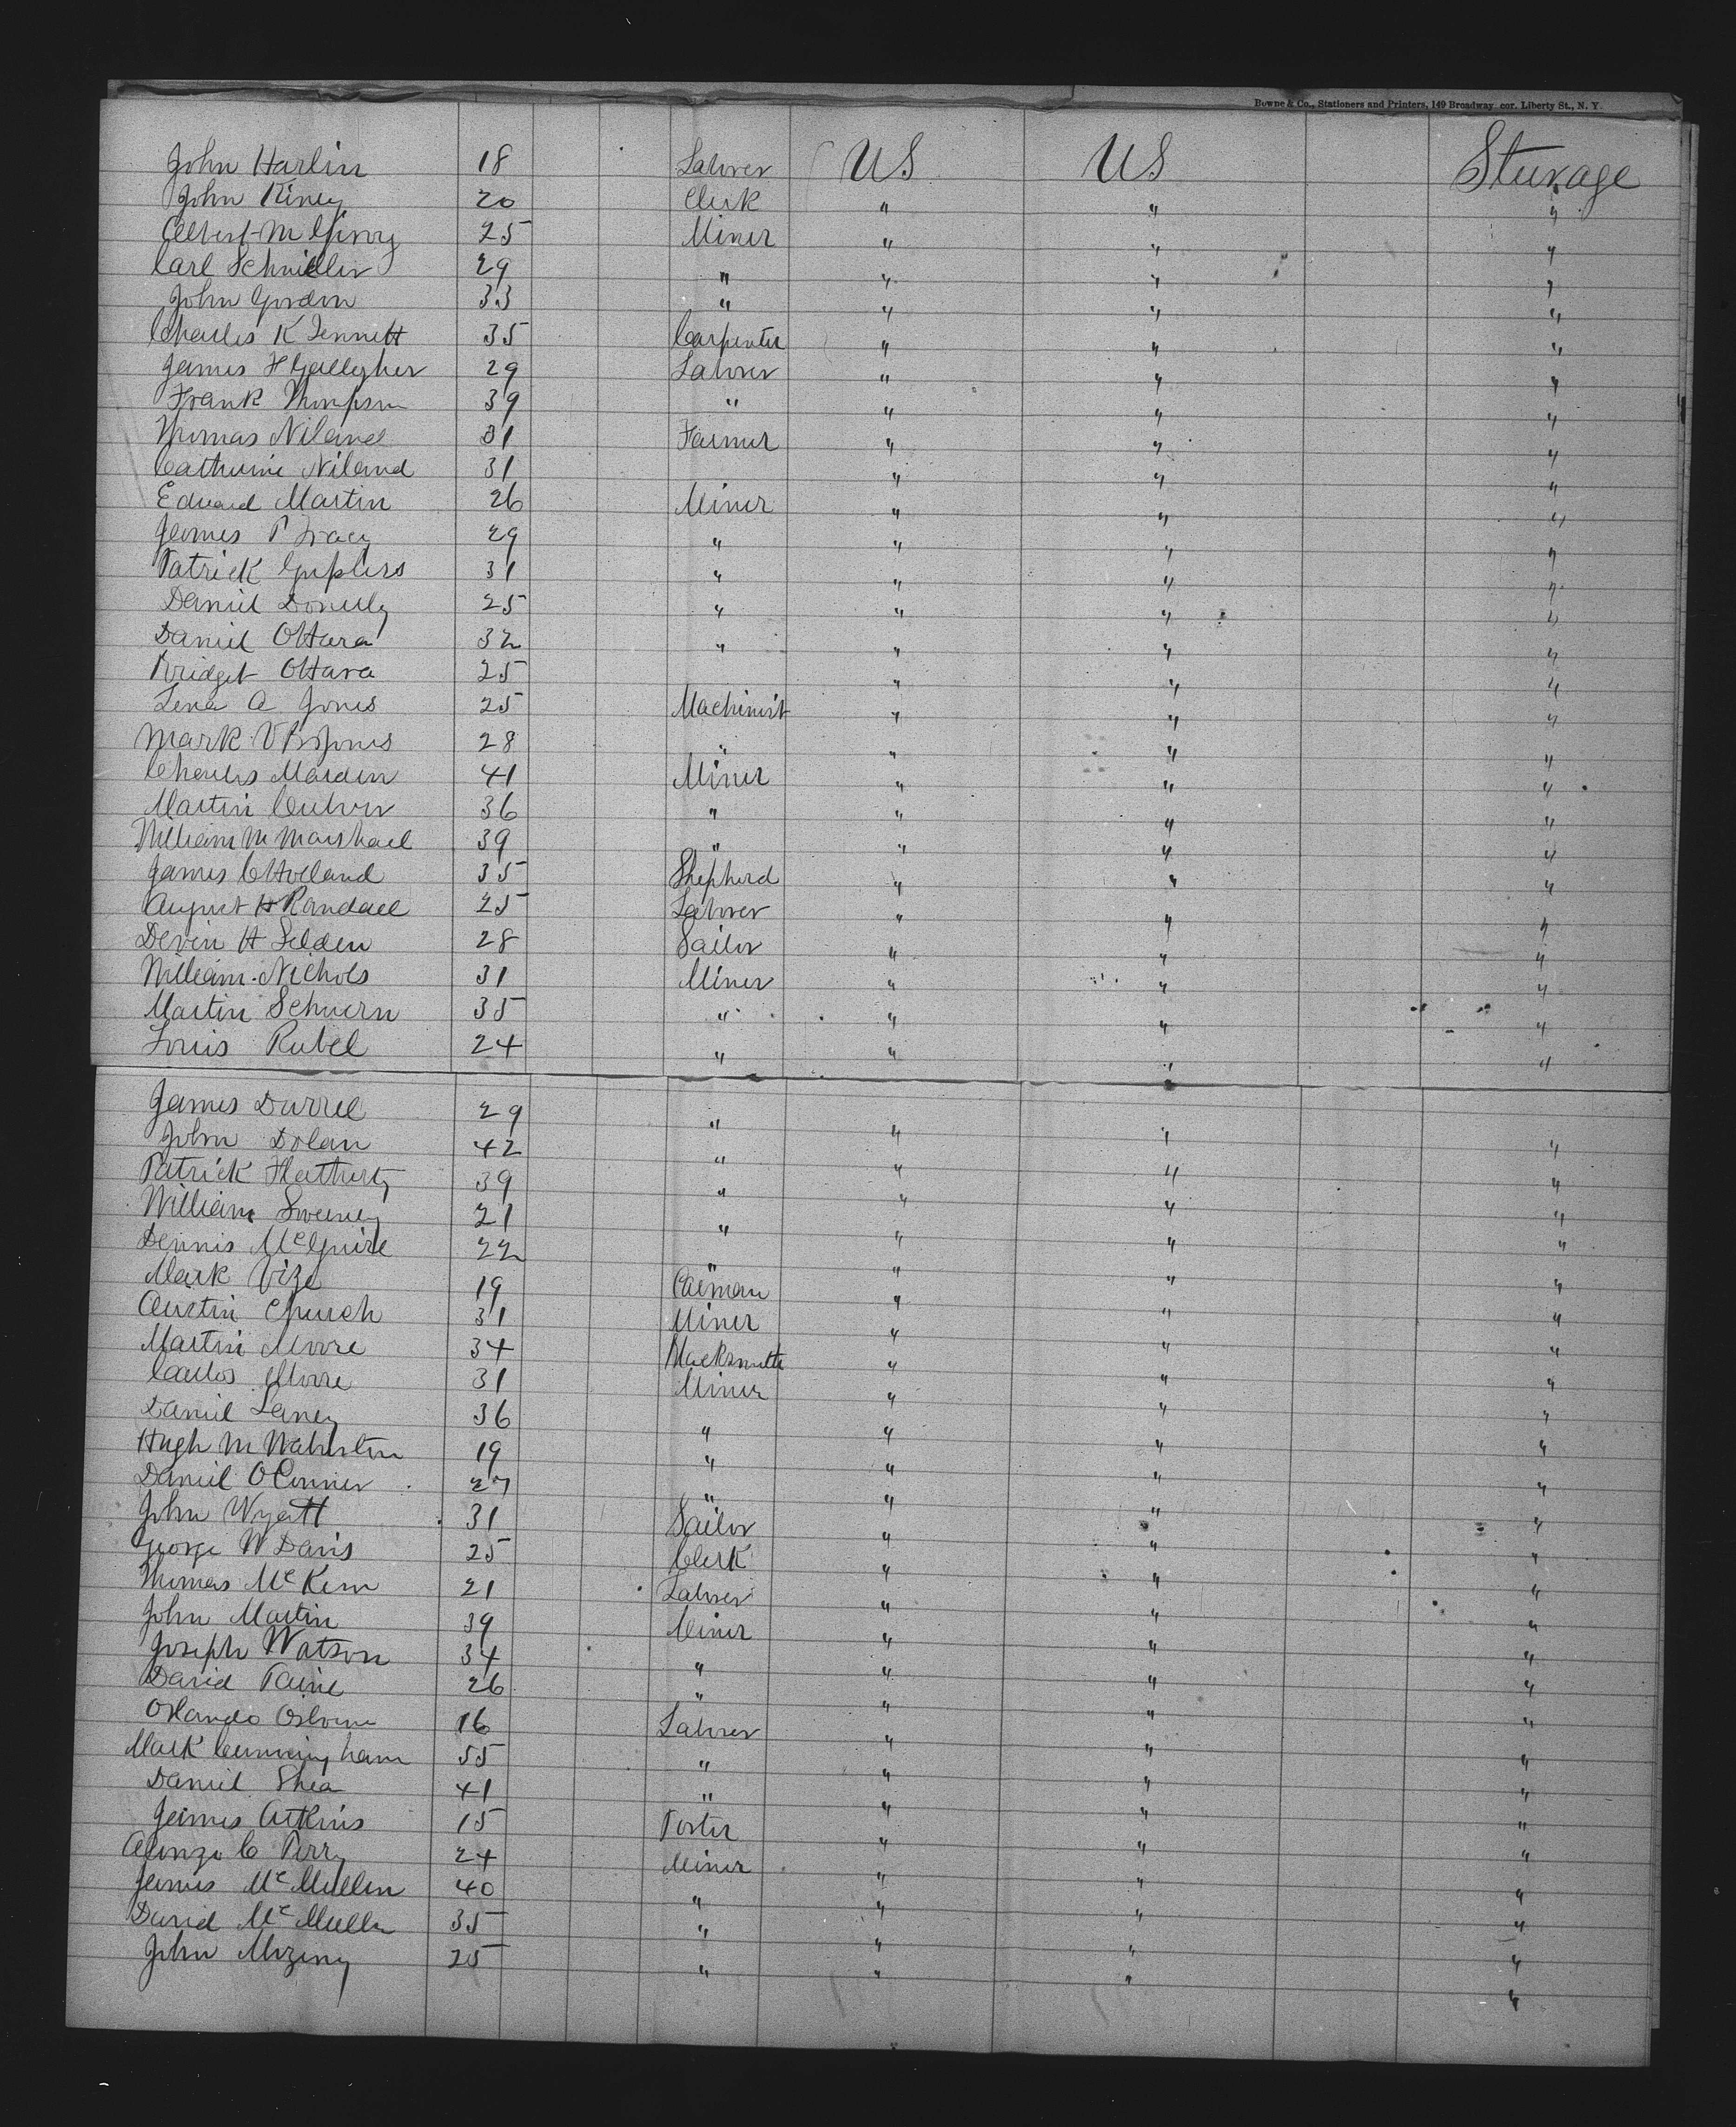 Bowne & Co., Stationers and Printers, 149 Broadway cor. Liberty St., N. Y.
John Harlin 18 Laborer US US Steerage
John Kiney 20 Clerk " " "
Albert 25 Miner " " "
Carl Schmiller 29 " " " "
John Gordon 33 " " " "
Charles K Tennett 35 Carpenter " " "
James H Gallegher 29 Laborer " " "
Frank Thompson 39 " " " "
Thomas Niland 31 Farmer " " "
Catherine Niland 31 " " "
Edward Martin 26 Miner " " "
James P Tracy 29 " " " "
Patrick 31 " " " "
Daniel Donelly 25 " " " "
Daniel OHara 32 " " " "
Bridget OHara 25 " " "
Lena A Jones 25 Machinist " " "
Mark V B Jones 28 " " " "
Charles Marden 41 Miner " " "
Martin Culver 36 " " " "
William M Marshall 39 " " " "
James C Holland 35 Shepherd " " "
August H Randall 25 Laborer " " "
Devin H Selden 28 Sailor " " "
William Nichols 31 Miner " " "
Martin Schuern 35 " " " "
Louis Rubel 24 " " " "
James Durrel 29 " " " "
John Dolan 42 " " " "
Patrick Flatherty 39 " " " "
William Sweeney 21 " " " "
Dennis McGuire 22 " " " "
Mark Vize 19 Carman " " "
Austin Church 31 Miner " " "
Martin Moore 34 Blacksmith " " "
Carlos Moore 31 Miner " " "
Daniel Laney 36 " " " "
Hugh M 19 " " " "
Daniel OConner 27 " " " "
John Wyatt 31 Sailor " " "
George W Davis 25 Clerk " " "
Thomas McKern 21 Laborer " " "
John Martin 39 Miner " " "
Joseph Watson 34 " " " "
David Paine 26 " " " "
Orlando Osborne 16 Laborer " " "
Mark Cunningham 55 " " " "
Daniel Shea 41 " " " "
James Atkins 15 Porter " " "
Alonzo C Perry 24 Miner " " "
James McMillen 40 " " " "
David McMullen 35 " " " "
John 25 " " " "